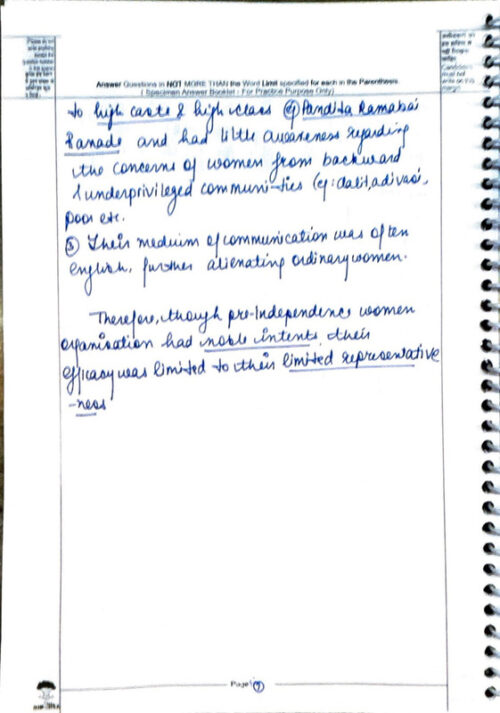 Answer Questions in NOT MORE THAN the Word Limit specified for each in the Parenthesis.
( Specimen Answer Booklet : For Practice Purpose Only)
Candidates must not write on this margin
to high caste & high class eg Pandita Ramabai
Ranade and had little awareness regarding
the concerns of women from backward
& underprivileged communi-ties (eg: dalit, adivasi,
poor etc.
③ Their meduim of communication was often
english, further alienating ordinary women.
Therefore, though pre-Independence women
organisation had noble intents, their
efficacy was limited to their limited representative
-ness
Page 7